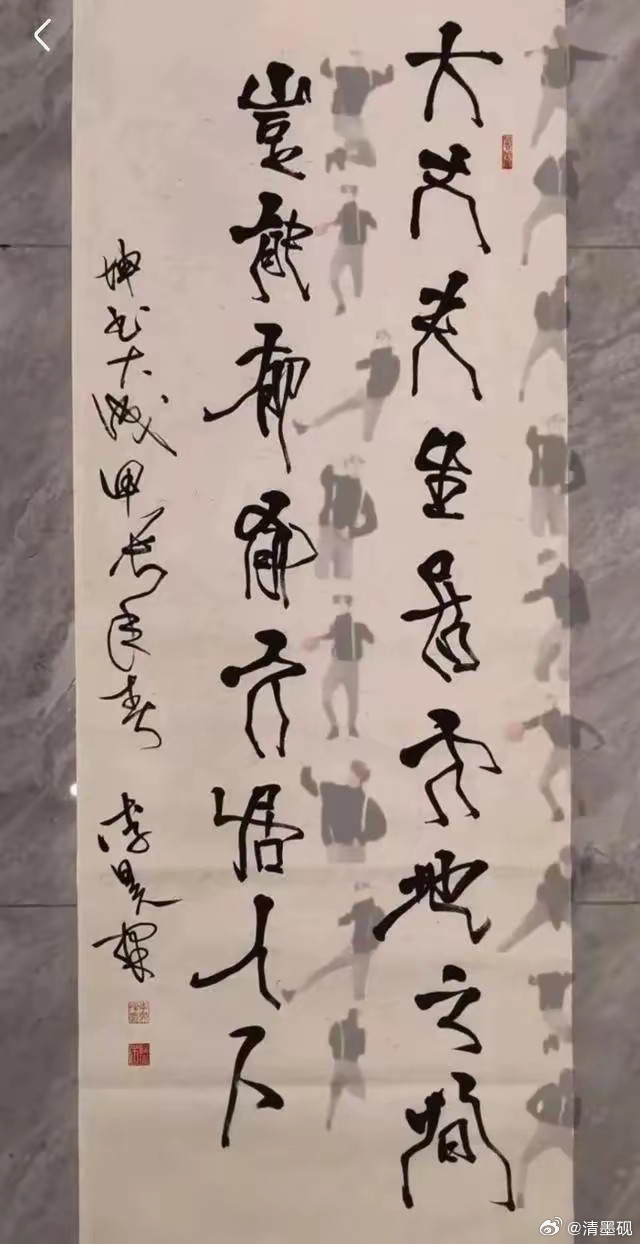 大丈夫生居天地之間
豈能郁郁久居人下
坤书大成 甲辰年春
@清墨砚